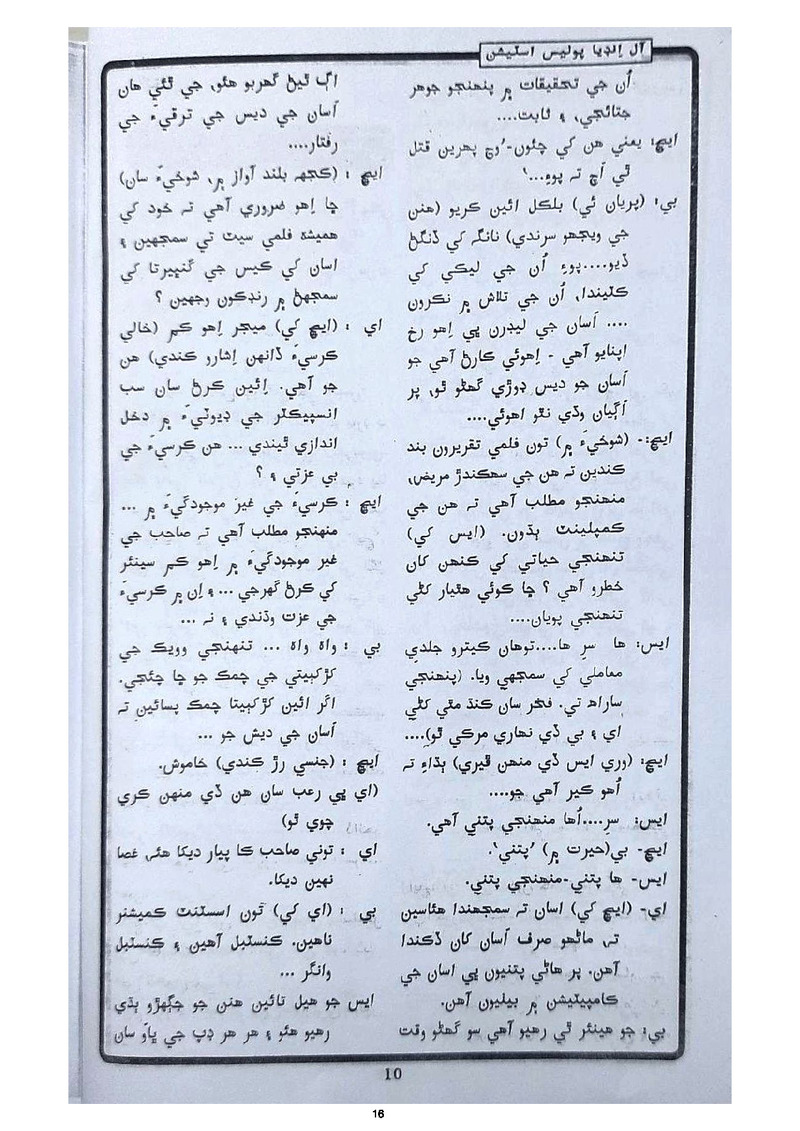 آل اِنڊيا پوليس اسٽيشن
اُن جي تحقيقات ۾ پنهنجو جوهر
جتائجي، ۽ ثابت....
ايڇ: يعني هن کي چئون-'وڃ پهرين قتل
ٿي اَچ تہ پوءِ...'
بي: (پريان ئي) بلڪل ائين ڪريو (هنن
جي ويجهو سرندي) نانگہ کي ڏنگڻ
ڏيو....پوءِ اُن جي ليڪي کي
ڪٽيندا، اُن جي تلاش ۾ نڪرون
.... اَسان جي ليڊرن پي اِهو رخ
اپنايو آهي - اِهوئي ڪارڻ آهي جو
اَسان جو ديس ڊوڙي گهڻو ٿو، پر
اَڳيان وڌي نٿو اهوئي....
ايڇ:- (شوخيءَ ۾) تون فلمي تقريرون بند
ڪندين تہ هن جي سهڪندڙ مريض،
منهنجو مطلب آهي تہ هن جي
ڪمپلينٽ ٻڌون. (ايس کي)
تنهنجي حياتي کي ڪنهن کان
خطرو آهي ؟ ڇا ڪوئي هٿيار کڻي
تنهنجي پويان....
ايس: ها سرِ ها....توهان ڪيترو جلدي
معاملي کي سمجهي ويا. (پنهنجي
ساراھ تي. فخر سان ڪنڌ مٿي کڻي
اي ۽ بي ڏي نهاري مرڪي ٿو)....
ايڇ: (وري ايس ڏي منهن ڦيري) ٻڌاءِ تہ
اُهو ڪير آهي جو....
ايس: سرِ....اُها منهنجي پتني آهي.
ايڇ- بي(حيرت ۾) 'پتني'.
ايس- ها پتني-منهنجي پتني.
اي- (ايڇ کي) اسان تہ سمجهندا هئاسين
تہ، ماڻهو صرف اَسان کان ڏڪندا
آهن. پر هاڻي پتنيون پي اسان جي
ڪامپيٽيشن ۾ بيليون آهن.
بي: جو هينئر ٿي رهيو آهي سو گهڻو وقت
اڳ ٿيڻ گهربو هئو، جي ٿئي هان
اَسان جي ديس جي ترقيءَ جي
رفتار....
ايڇ : (ڪجهہ بلند آواز ۾، شوخيءَ سان)
ڇا اِهو ضروري آهي تہ خود کي
هميشہ فلمي سيٽ تي سمجهين ۽
اسان کي ڪيس جي گنڀيرتا کي
سمجهڻ ۾ رنڊڪون وجهين ؟
اي : (ايڇ کي) ميجر اِهو ڪم (خالي
ڪرسيءَ ڏانهن اِشارو ڪندي) هن
جو آهي. اِئين ڪرڻ سان سب
انسپيڪٽر جي ڊيوٽيءَ ۾ دخل
اندازي ٿيندي ... هن ڪرسيءَ جي
بي عزتي ۽ ؟
ايڇ : ڪرسيءَ جي غير موجودگيءَ ۾ ...
منهنجو مطلب آهي تہ صاحب جي
غير موجودگيءَ ۾ اِهو ڪم سينئر
کي ڪرڻ گهرجي ... ۽ اِن ۾ ڪرسيءَ
جي عزت وڌندي ۽ نہ ...
بي : واهہ واهہ ... تنهنجي وويڪ جي
کڙکپيتي جي چمڪ جو ڇا چئجي.
اگر ائين کڙکپيتا چمڪ پسائين تہ
اَسان جي ديش جو ...
ايڇ : (جنسي رڙ ڪندي) خاموش.
(اي پي رعب سان هن ڏي منهن ڪري
چوي ٿو)
اي : توني صاحب ڪا پيار ديکا هئہ، غصا
نهين ديکا.
بي : (اي کي) تون اسسٽنٽ ڪميشنر
ناهين. ڪنسٽبل آهين ۽ ڪنسٽبل
وانگر ...
ايس جو هيل تائين هنن جو جڳهڙو ٻڌي
رهيو هئو ۽ هر هر ڊپ جي ڀاوَ سان
10
16